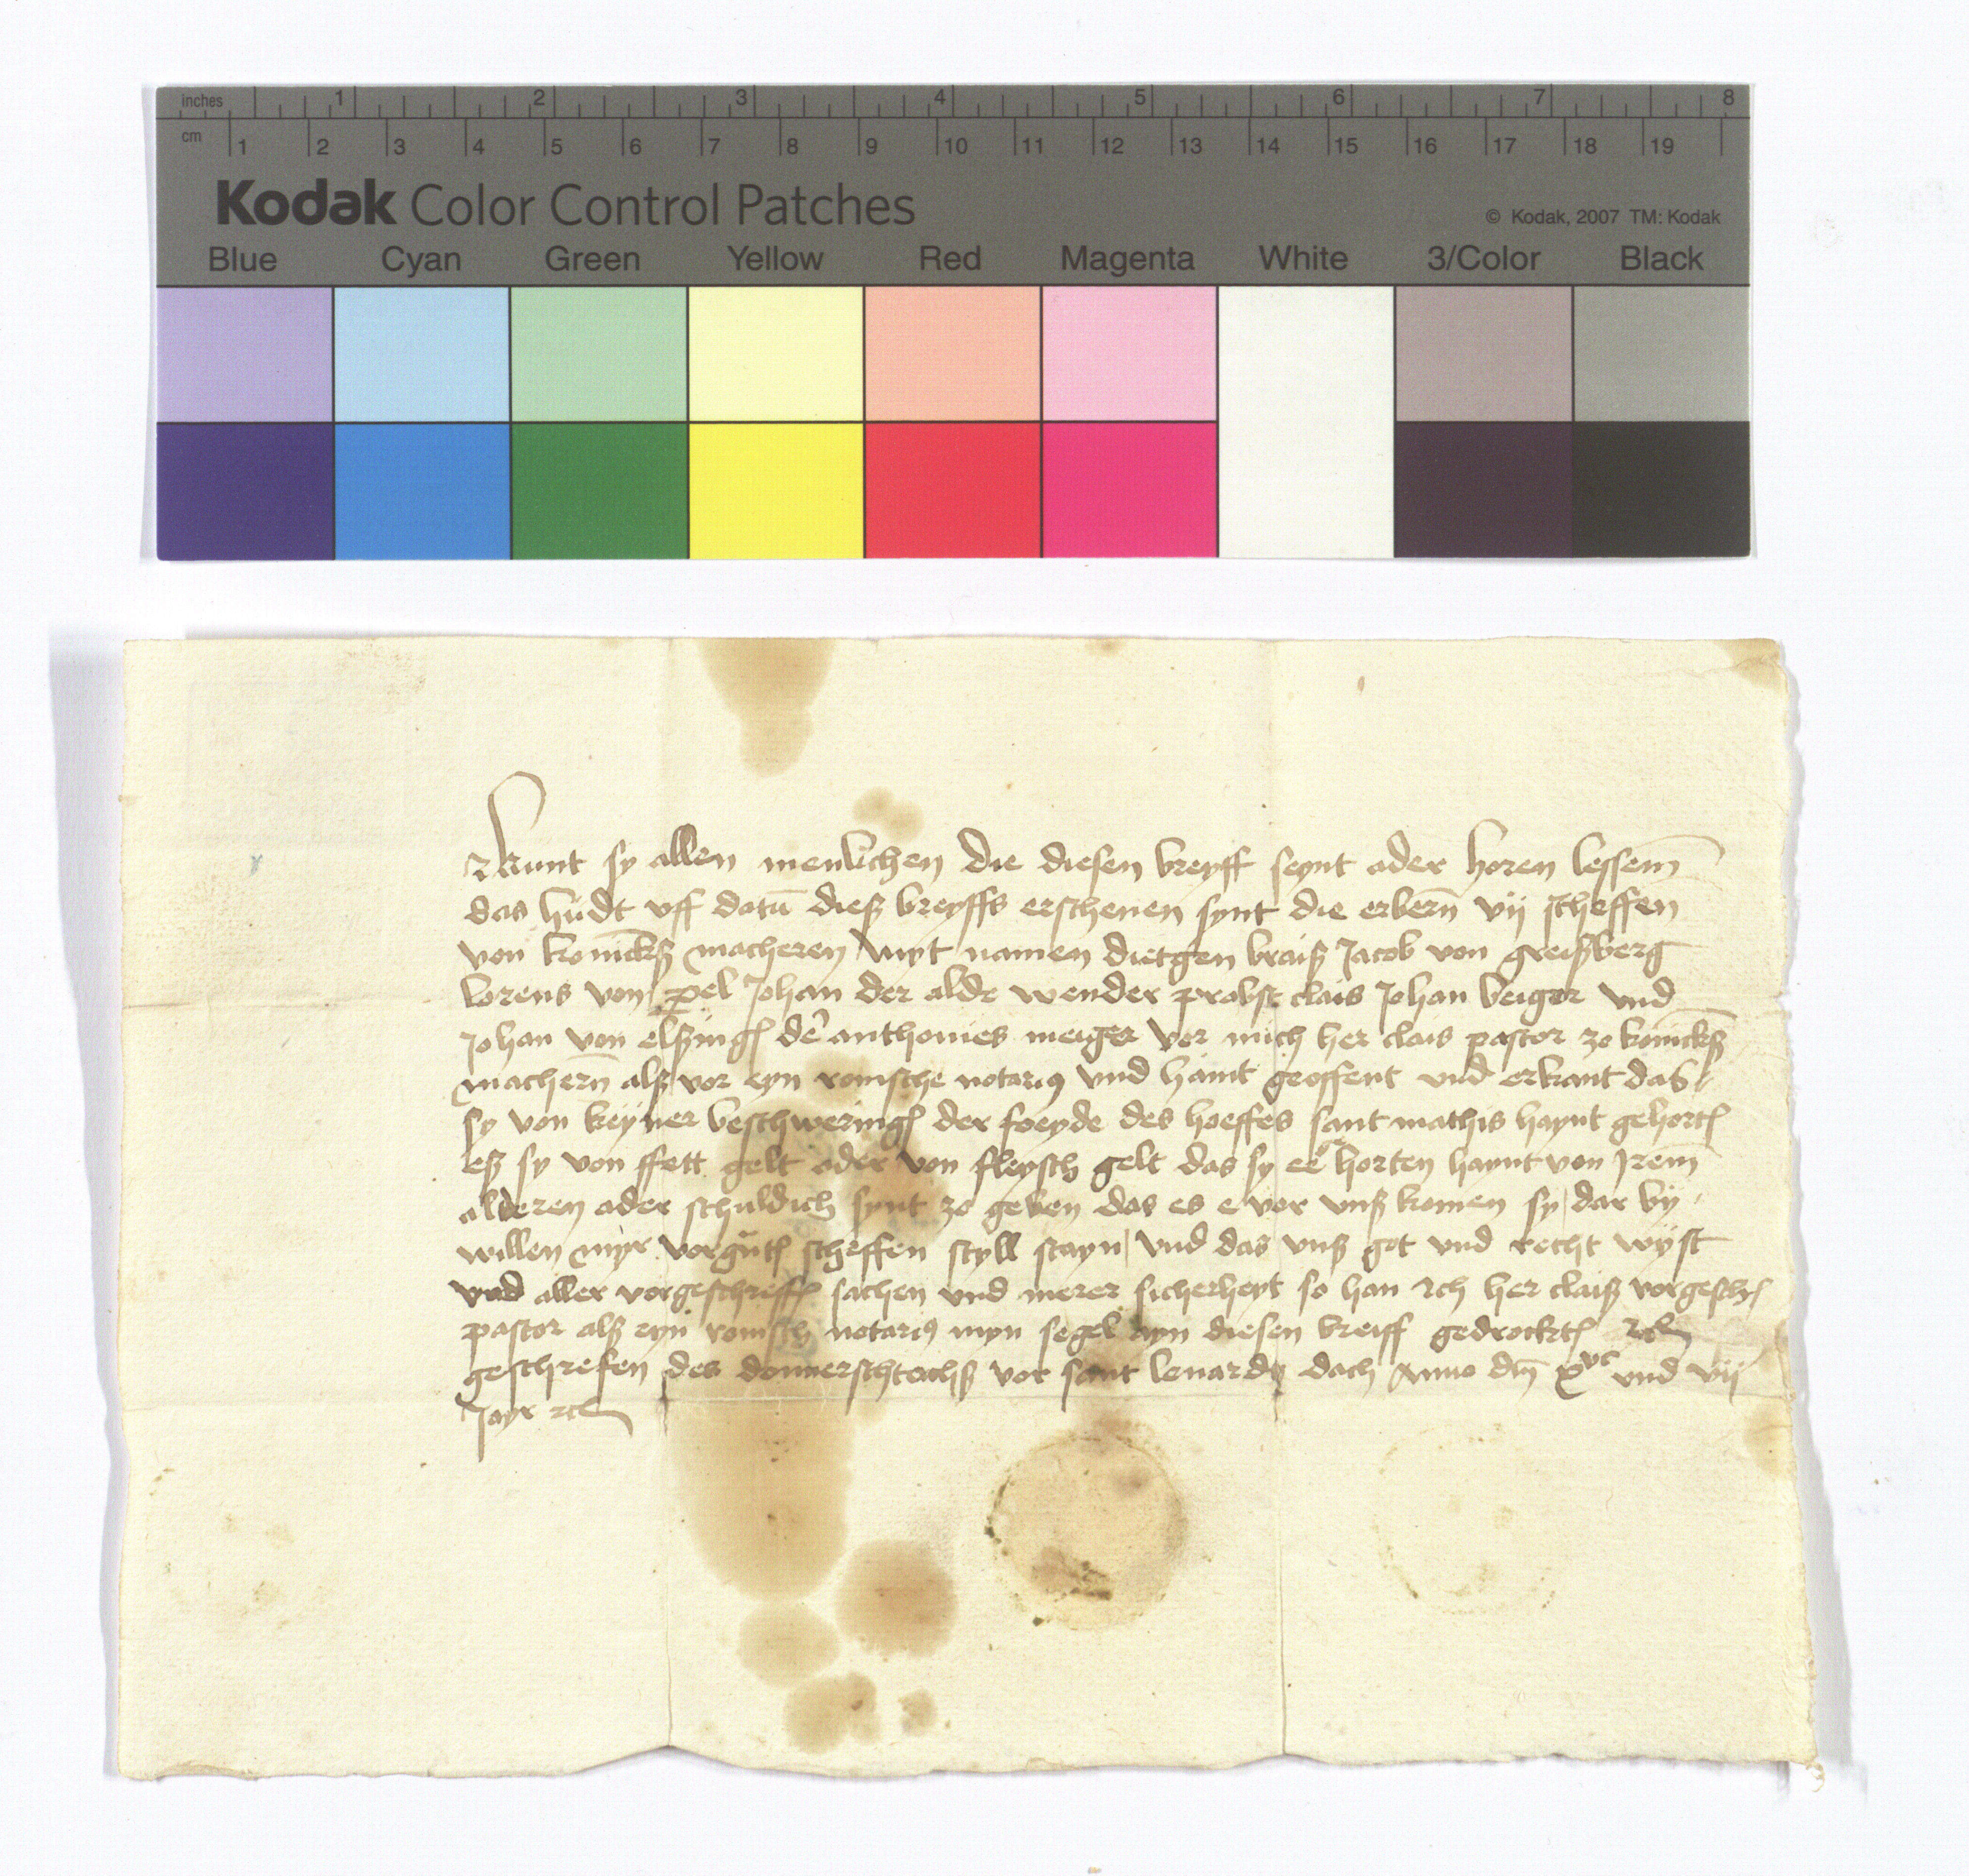 inches 1 2 3 4 5 6 7 8
cm 1 2 3 4 5 6 7 8 9 10 11 12 13 14 15 16 17 18 19
Kodak Color Control Patches
© Kodak, 2007 TM: Kodak
Blue Cyan Green Yellow Red Magenta White 3/Color Black
Kunt sy allen menschen die diesen breyff seynt ader horen lessen̄
das hudt vff datū dieß breyffs erschenen synt die erbern̄ vij scheffen
von konickß macheren myt namen dietgen braiß Jacob von greißberg
lorens von pel Johan der alde wender probst clais Johan beiger vnd
Johan von elßing de anthonies meiger vor mich her clais pastor zo konickß
machern̄ alß vor eyn romsche notarius vnd haint geoffent vnd erkant das
sy von keyner beschwering der foeyde des hoeffes sant mathis haynt gehort
eß sy von ffett gelt oder von fleysch gelt das sy ee horten haynt von Jren̄
alderen ader schuldich synt zo geben das es e vor vnß komen sy dar by
willen myr vorgut scheffen styll stayn vnd das vnß got vnd recht wyst
vnd aller vorgeschreff sachen vnd merer sicherheyt so han Ich her claiß vorgesch
pastor alß eyn romsch notarius myn segel ayn diesen breiff gedrockt
geschrefen des donnerschtachß vor sant lenardz dach Anno dn̄ xvc vnd vij
Jayr